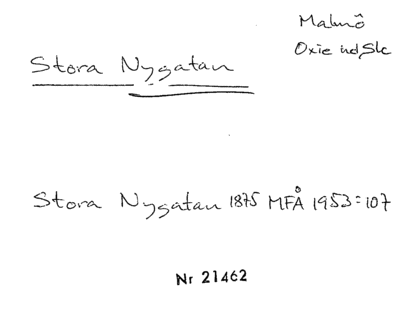 Malmô
Oxie hd, Sk
Stora Nygatan
Stora Nygatan 1875 MFÅ 1953:107
Nr 21462